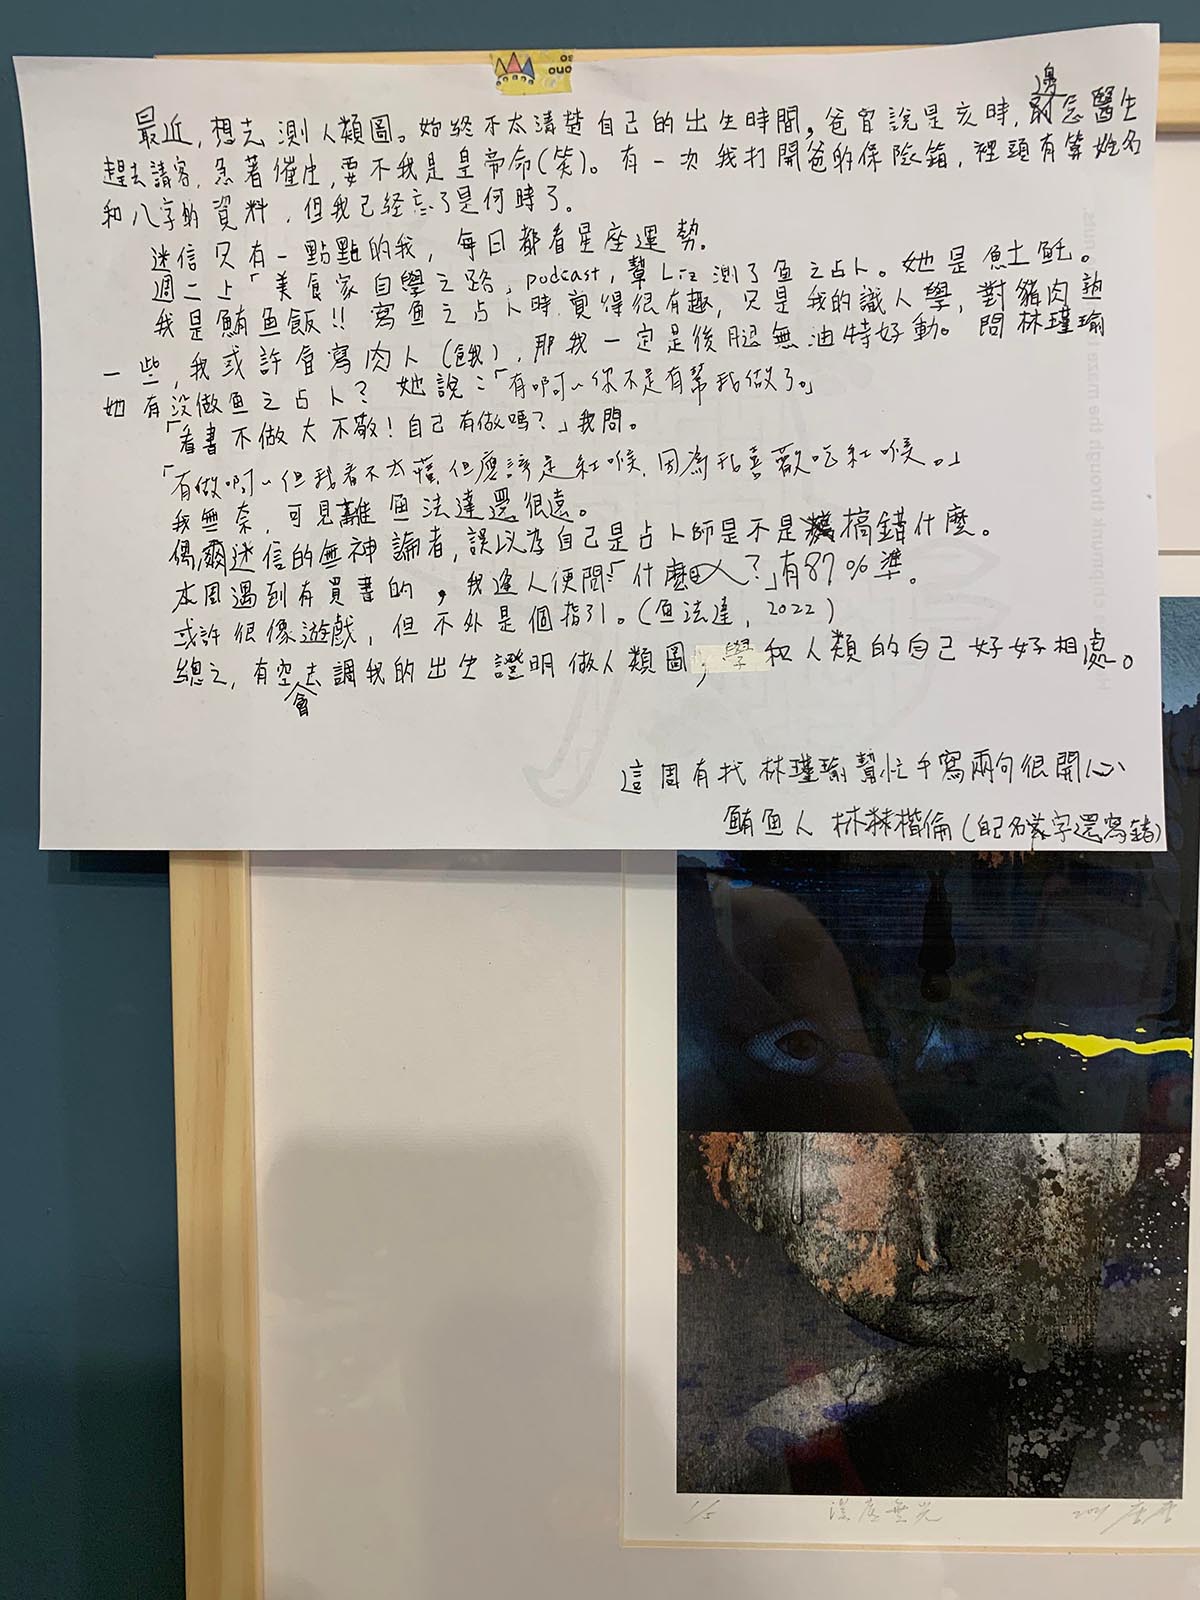 最近，想去測人類圖。始終不太清楚自己的出生時間。爸曾說是亥時，邊怨醫生
趕去請客，急著催生，要不我是皇帝命(笑)。有一次我打開爸的保險箱，裡頭有算姓名
和八字的資料，但我已經忘了是何時了。
迷信只有一點點的我，每日都看星座運勢。
週二上「美食家自學之路」podcast，幫Liz測了魚之占卜。她是魠土魠。
我是鮪魚飯!! 寫魚之占卜時覺得很有趣，只是我的識人學，對豬肉熟
一些，我或許會寫肉人(餓)，那我一定是後腿無油特好動。問林瑾瑜
她有沒做魚之占卜？她說：「有啊~你不是有幫我做了。」
「看書不做大不敬！自己有做嗎？」我問。
「有做啊~但我看不太懂，但應該是紅喉，因為我喜歡吃紅喉。」
我無奈，可見離魚法達還很遠。
偶爾迷信的無神論者，誤以為自己是占卜師是不是搞錯什麼。
本周遇到有買書的，我逢人便問：「什麼人？」有87%準。
或許很像遊戲，但不外是個指引。(魚法達，2022)
總之，有空會去調我的出生證明做人類圖，學和人類的自己好好相處。
這周有找林瑾瑜幫忙手寫兩句很開心
鮪魚人 林楷倫(自己名字還寫錯)
chipmunk through the maze
nuts.
1/5
深底無光
2021